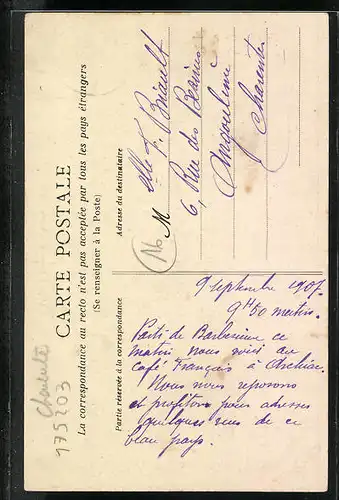 CARTE POSTALE
La correspondance au recto n'est pas acceptée par tous les pays étrangers
(Se renseigner à la Poste)
Partie réservée à la correspondance
Adresse du destinataire
9 septembre 1907.
9H50 matin.
Parti de Barbezieux ce
matin nous voici au
café Français à Archiac.
Nous nous reposons
et profitons pour adresser
quelques vues de ce
beau pays.
M elle F. Briault
6, Rue des Beaunes
Angoulême
Charente
Charente
175203